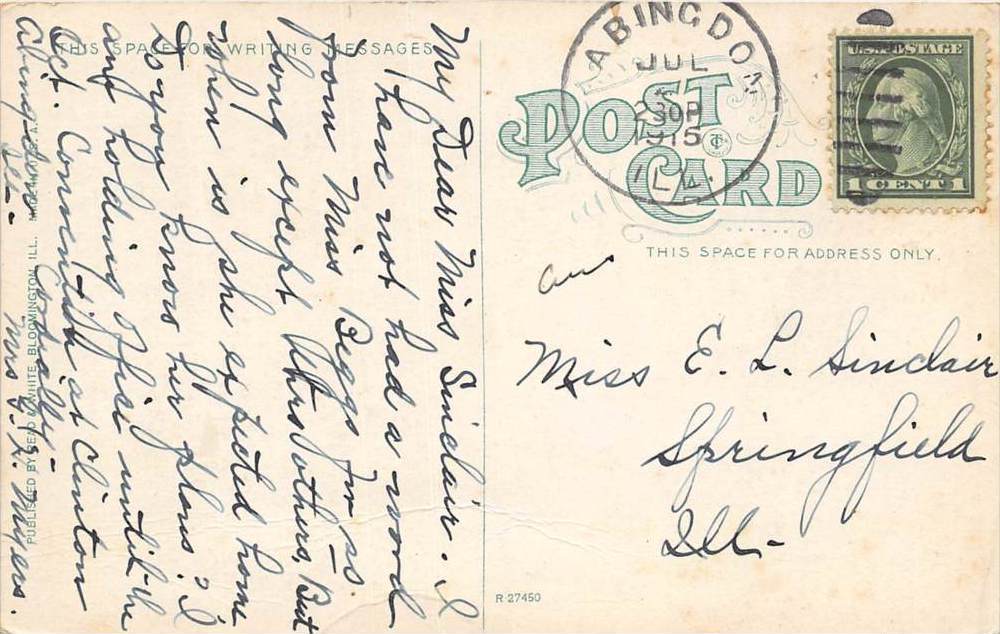 THIS SPACE FOR WRITING MESSAGES
My Dear Miss Sinclair. I
have not had a word
from Miss Beggs for so
long except thro others. But
when is she expected home
Do you know her plans? I
am holding office until the
Oct. Convention at Clinton
Abingdon Cordially-
Ill- Mrs J. R. Myers.
PUBLISHED BY WHITE, BLOOMINGTON, ILL.
ABINGDON
JUL
5
230P
1915
ILL.
U.S. POSTAGE
1 CENT 1
POST
CARD
THIS SPACE FOR ADDRESS ONLY.
Ans
Miss E. L. Sinclair
Springfield
Ill-
R 27450